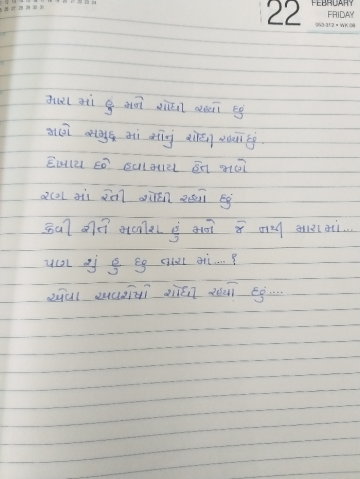 22
FEBRUARY
FRIDAY
મારા માં હું મને શોધી રહ્યો છું
જાણે સમુદ્ર માં સોનું શોધી રહ્યો છું.
દેખાય છો હવામાય હેત જાણે
રણ માં રેતી શોધી રહ્યો છું
કેવી રીતે મળીશ હું મને જે નથી મારામાં...
પણ શું હું છું તારા માં....?
એવા અવશેષો શોધી રહ્યો છું....